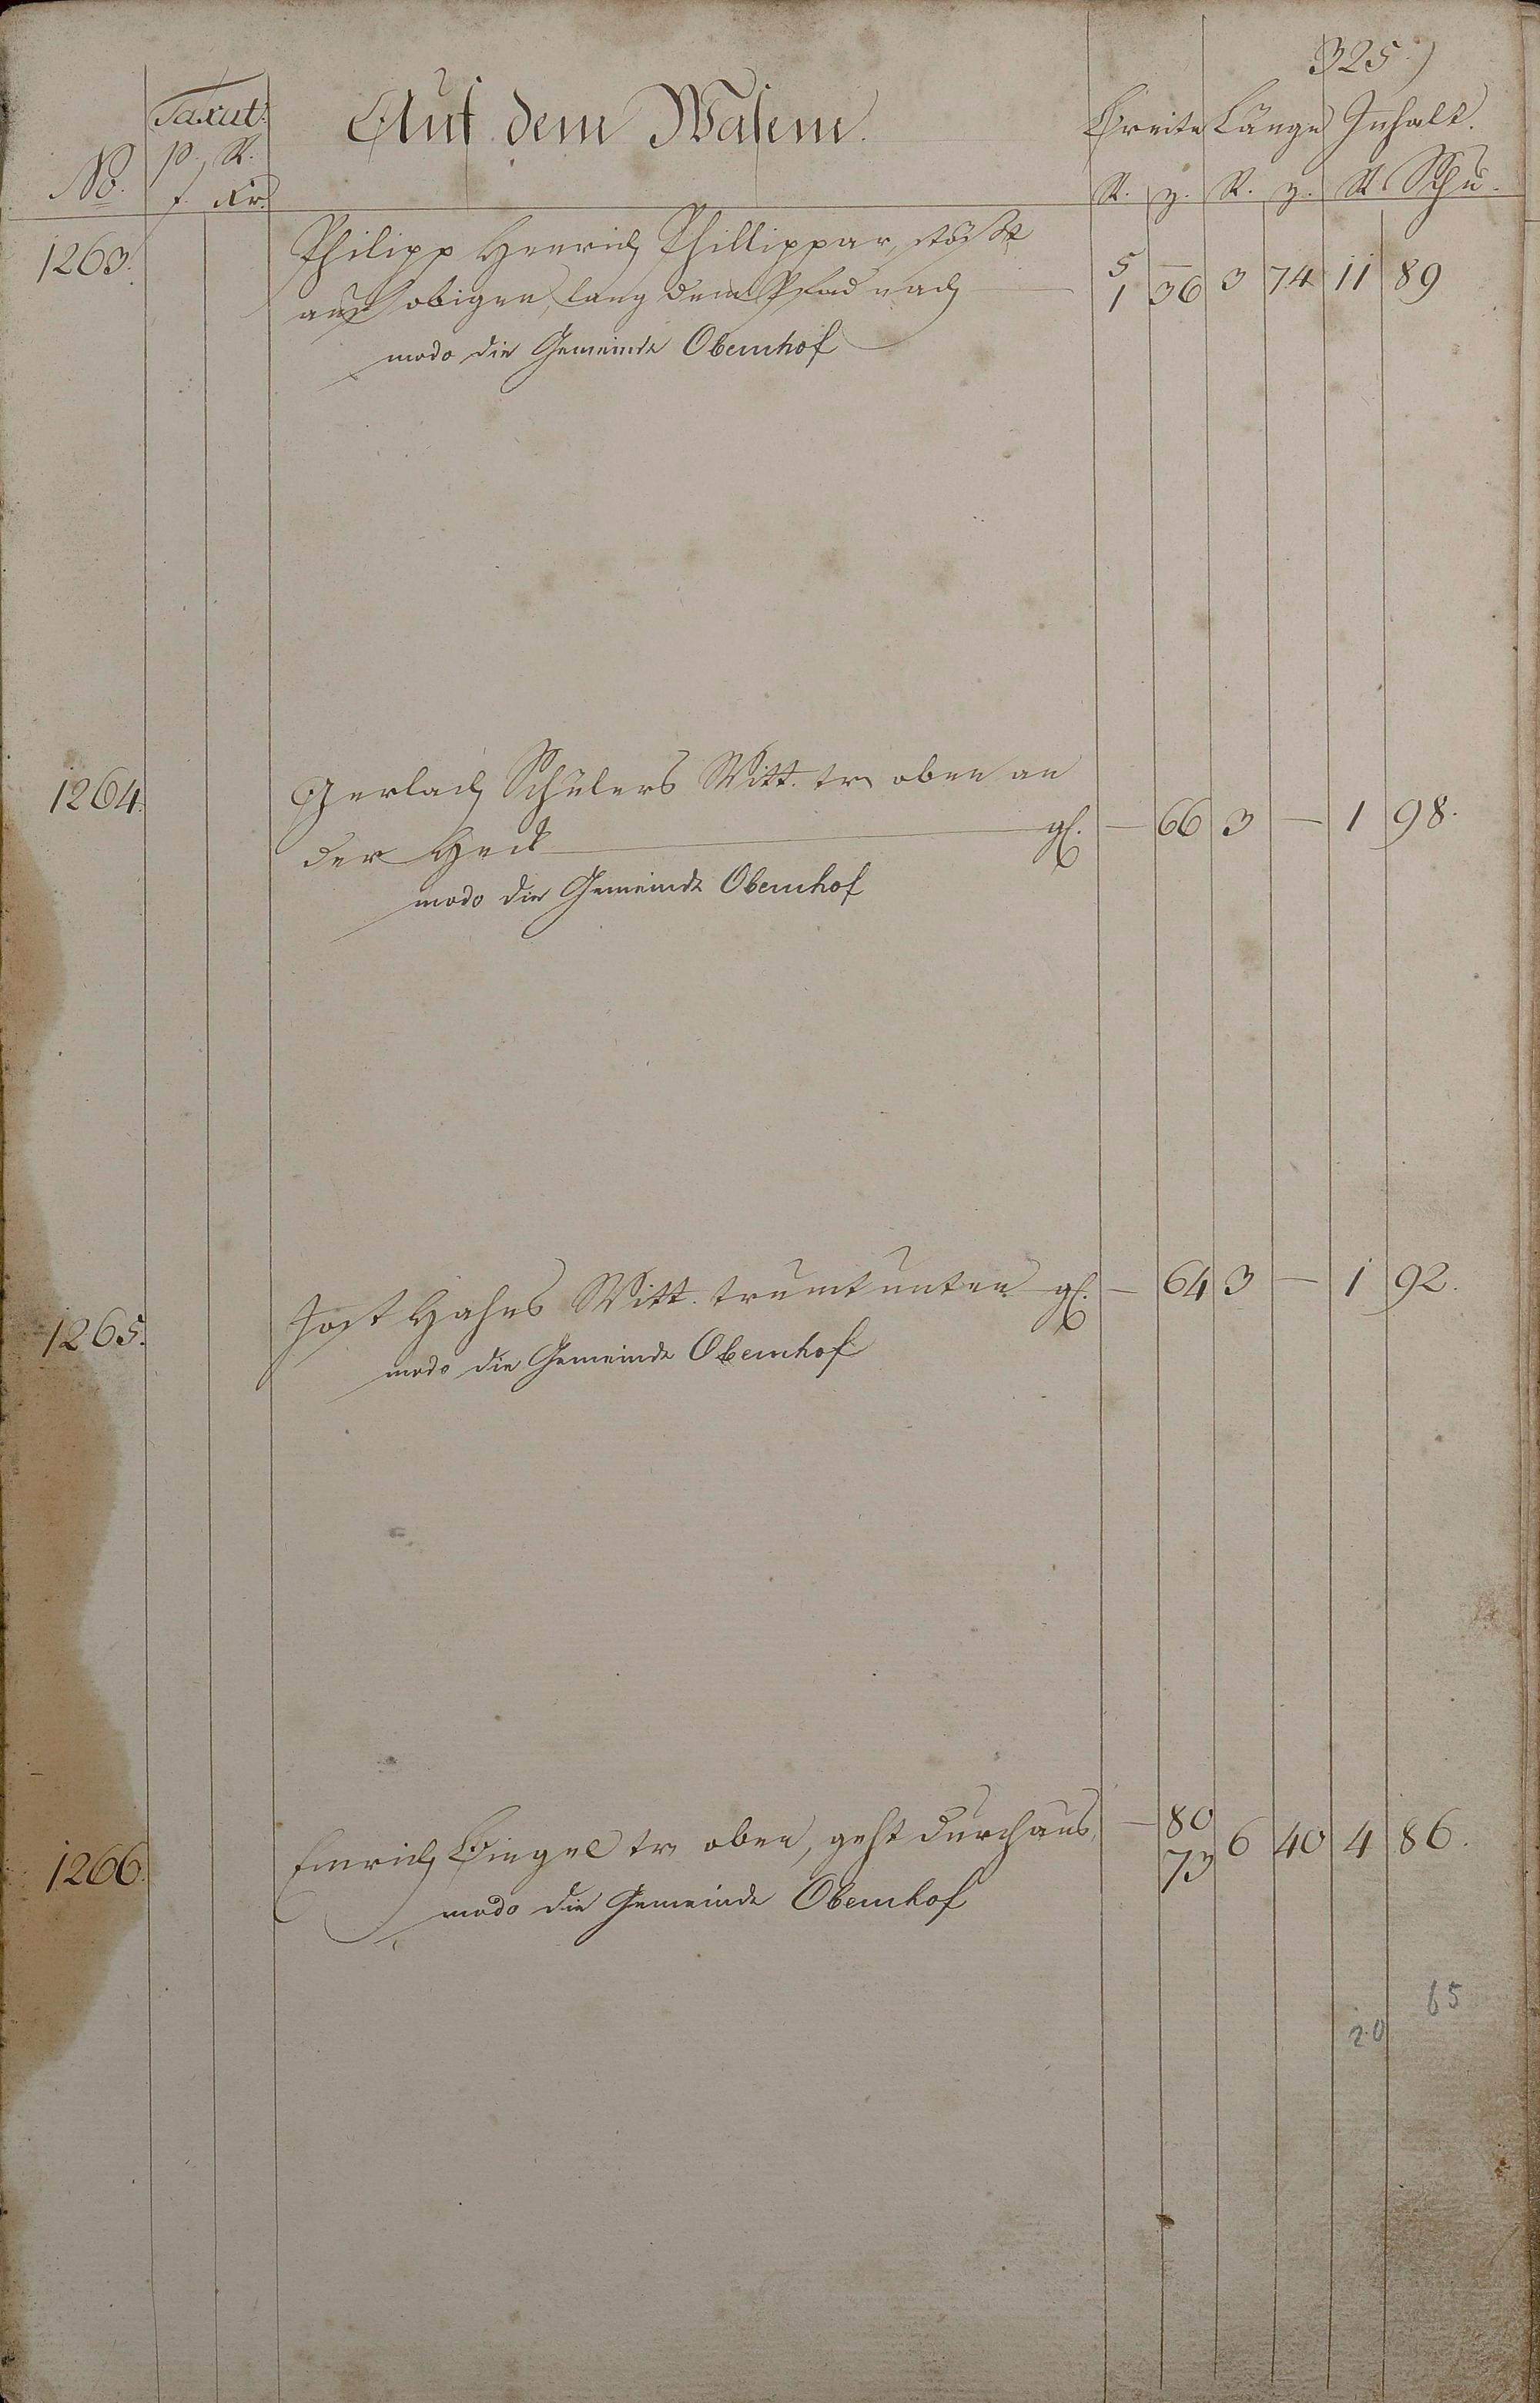 325.)
Taxat. Auf dem Wasem. Breite Länge Inhalt.
No. p. R. f. Kr. R. z. R. z. R Schu.
1263. Philipp Henrich Phillippar, stößt 5 — 3 74 11 89
auf obigen, lang dem Pfad nach 1 36
modo die Gemeinde Obernhof
1264. Gerlach Schülers Witt. tr. oben an
der Heck gl. — 66 3 — 1 98.
modo die Gemeinde Obernhof
1265. Jost Hahns Witt. trumt unten gl. — 64 3 — 1 92.
modo die Gemeinde Obernhof
1266. Emrich Bingel tr. oben, geht durchaus — 80 6 40 4 86.
73
modo die Gemeinde Obernhof
65
20